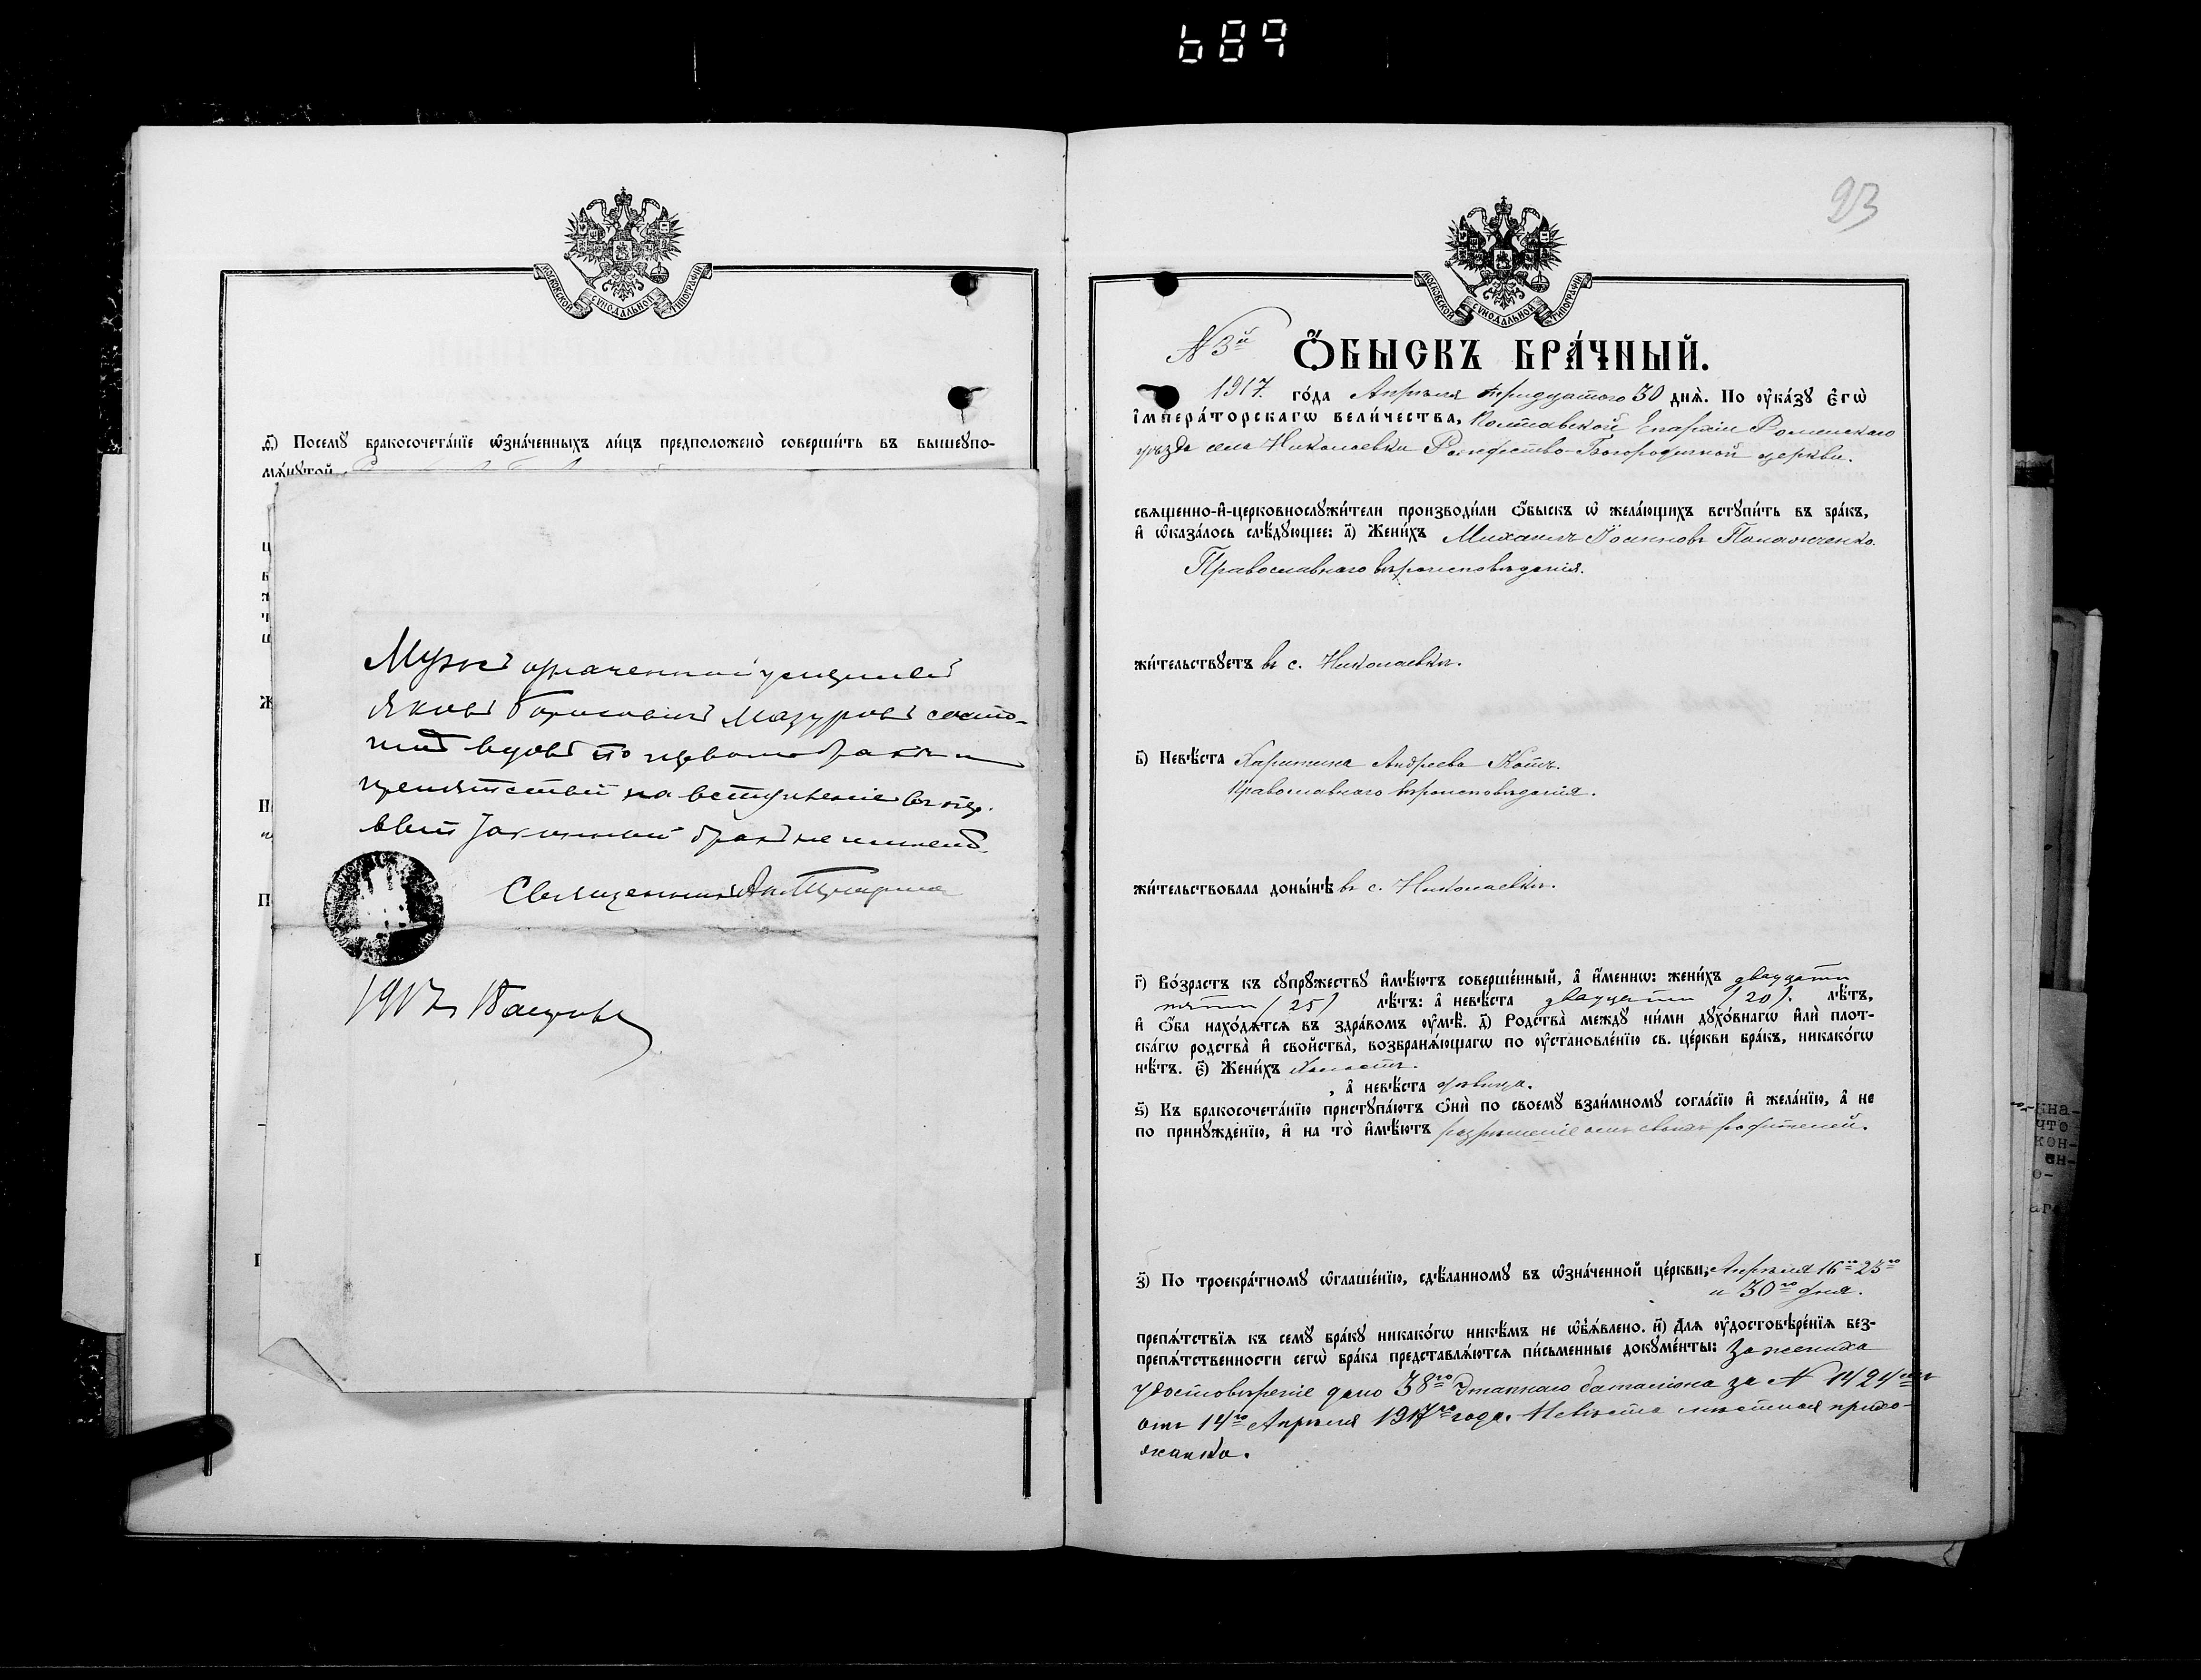 689
МОСКОВСКОЙ СѴНОДАЛЬНОЙ ТИПОГРАФІИ
ѳ҃) Посемꙋ̀ бракосочета́нїе ѡ҆зна́ченныхъ ли́цъ предположено̀ соверши́ть въ вышеꙋпо-
мѧ́нꙋтой
Мужъ означенной умершей
Яковъ Борисовичъ Мазуровъ состо-
итъ вдовъ по первомъ бракѣ и
препятствій на вступленіе въ пер-
вый законный бракъ не имѣетъ.
Священникъ
1917 г.
23
МОСКОВСКОЙ СѴНОДАЛЬНОЙ ТИПОГРАФІИ
N 3й
Ѻ҆БЫСКЪ БРА́ЧНЫЙ.
1917. го́да Апрѣля тридцатого 30 днѧ̀. По ᲂу҆ка́зꙋ Є҆гѡ̀
І҆мпера́торскагѡ вели́чества, Полтавской Епархіи Роменскаго
уѣзда села Николаевки Рождество-Богородичной церкви.
свѧщенно-и҆-церковнослꙋжи́тели производи́ли ѻ҆́быскъ ѡ҆ жела́ющихъ встꙋпи́ть въ бра́къ,
и҆ ѡ҆каза́лось слѣ́дꙋющее: а҃) Жени́хъ Михаилъ Іоанновъ
Православнаго вѣроисповѣданія.
жи́тельствꙋетъ въ с. Николаевкѣ.
в҃) Невѣ́ста Харитина Андреева Котъ.
Православнаго вѣроисповѣданія.
жи́тельствовала доны́нѣ въ с. Николаевкѣ.
г҃) Во́зрастъ къ сꙋпрꙋ́жествꙋ и҆мѣ́ютъ соверше́нный, а҆ и҆́меннѡ: жени́хъ двадцати
пяти /25/ лѣ́тъ: а҆ невѣ́ста двадцати /20/. лѣ́тъ,
и҆ ѻ҆́ба нахо́дѧтсѧ въ здра́вомъ ᲂу҆мѣ̀. д҃) Родства̀ междꙋ ни́ми дꙋхо́внагѡ и҆лѝ плот-
ска́гѡ родства̀ и҆ сво́йства̀, возбранѧ́ющагѡ по ᲂу҆становле́нїю св. це́ркви бра́къ, никако́гѡ
нѣ́тъ. є҃) Жени́хъ холостъ.
, а҆ невѣ́ста дѣвица.
ѕ҃) Къ бракосочета́нїю пристꙋпа́ютъ ѻ҆нѝ по своемꙋ̀ взаи́мномꙋ согла́сїю и҆ жела́нїю, а҆ не
по принꙋжде́нїю, и҆ на то̀ и҆мѣ́ютъ разрѣшеніе отъ своихъ родителей.
з҃) По троекра́тномꙋ ѡ҆глаше́нїю, сдѣ́ланномꙋ въ ѡ҆зна́ченной це́ркви; Апрѣля 16го 23го
и 30го дня.
препѧ́тствїѧ къ семꙋ̀ бра́кꙋ никако́гѡ никѣ́мъ не ѡ҆б̾ѧ́влено. и҃) Для ᲂу҆достовѣре́нїѧ без-
препѧ́тственности сегѡ̀ бра́ка представлѧ́ютсѧ пи́сьменные докꙋме́нты: За жениха
удостовѣреніе дано 38го Этапнаго баталіона за N
отъ 14го Апрѣля 1917го года. Невѣста мѣстная прихо-
жанка.